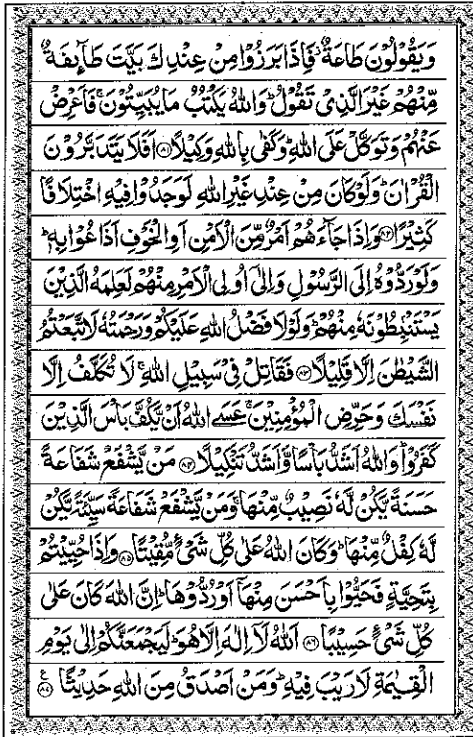 وَيَقُوْلُوْنَ طَاعَةٌ ۫ فَاِذَا بَرَزُوْا مِنْ عِنْدِكَ بَيَّتَ طَآئِفَةٌ
مِّنْهُمْ غَيْرَ الَّذِىْ تَقُوْلُ ؕ وَاللّٰهُ يَكْتُبُ مَا يُبَيِّتُوْنَ ۚ فَاَعْرِضْ
عَنْهُمْ وَتَوَكَّلْ عَلَى اللّٰهِ ؕ وَكَفٰى بِاللّٰهِ وَكِيْلًا ﴿۸۱﴾ اَفَلَا يَتَدَبَّرُوْنَ
الْقُرْاٰنَ ؕ وَلَوْ كَانَ مِنْ عِنْدِ غَيْرِ اللّٰهِ لَوَجَدُوْا فِيْهِ اخْتِلَافًا
كَثِيْرًا ﴿۸۲﴾ وَاِذَا جَآءَهُمْ اَمْرٌ مِّنَ الْاَمْنِ اَوِ الْخَوْفِ اَذَاعُوْا بِهٖ ؕ
وَلَوْ رَدُّوْهُ اِلَى الرَّسُوْلِ وَاِلٰٓى اُولِى الْاَمْرِ مِنْهُمْ لَعَلِمَهُ الَّذِيْنَ
يَسْتَنْۢبِطُوْنَهٗ مِنْهُمْ ؕ وَلَوْلَا فَضْلُ اللّٰهِ عَلَيْكُمْ وَرَحْمَتُهٗ لَاتَّبَعْتُمُ
الشَّيْطٰنَ اِلَّا قَلِيْلًا ﴿۸۳﴾ فَقَاتِلْ فِىْ سَبِيْلِ اللّٰهِ ۚ لَا تُكَلَّفُ اِلَّا
نَفْسَكَ وَحَرِّضِ الْمُؤْمِنِيْنَ ۚ عَسَى اللّٰهُ اَنْ يَّكُفَّ بَاْسَ الَّذِيْنَ
كَفَرُوْا ؕ وَاللّٰهُ اَشَدُّ بَاْسًا وَّاَشَدُّ تَنْكِيْلًا ﴿۸۴﴾ مَنْ يَّشْفَعْ شَفَاعَةً
حَسَنَةً يَّكُنْ لَّهٗ نَصِيْبٌ مِّنْهَا ۚ وَمَنْ يَّشْفَعْ شَفَاعَةً سَيِّئَةً يَّكُنْ
لَّهٗ كِفْلٌ مِّنْهَا ؕ وَكَانَ اللّٰهُ عَلٰى كُلِّ شَىْءٍ مُّقِيْتًا ﴿۸۵﴾ وَاِذَا حُيِّيْتُمْ
بِتَحِيَّةٍ فَحَيُّوْا بِاَحْسَنَ مِنْهَآ اَوْ رُدُّوْهَا ؕ اِنَّ اللّٰهَ كَانَ عَلٰى
كُلِّ شَىْءٍ حَسِيْبًا ﴿۸۶﴾ اَللّٰهُ لَآ اِلٰهَ اِلَّا هُوَ ؕ لَيَجْمَعَنَّكُمْ اِلٰى يَوْمِ
الْقِيٰمَةِ لَا رَيْبَ فِيْهِ ؕ وَمَنْ اَصْدَقُ مِنَ اللّٰهِ حَدِيْثًا ﴿۸۷﴾ ع